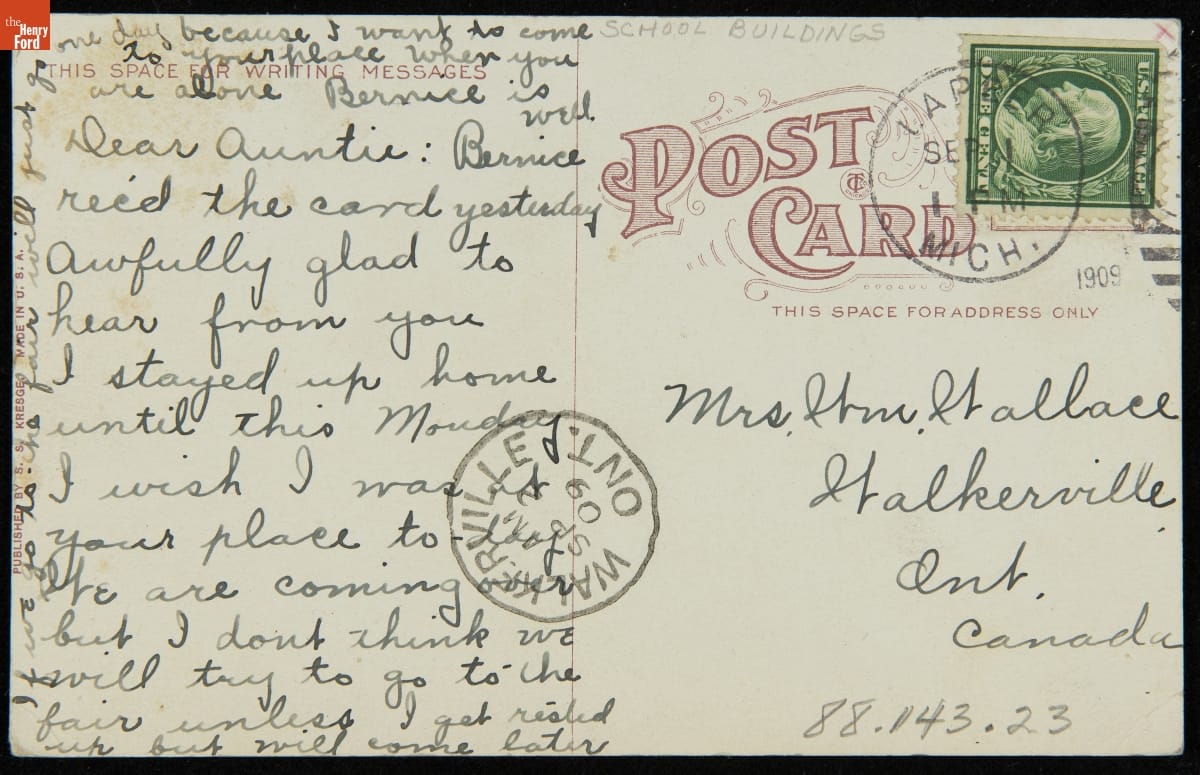 the
Henry
Ford
one day because I want to come
to your place when you
are alone Bernice is
well
THIS SPACE FOR WRITING MESSAGES
Dear Auntie: Bernice
rec'd the card yesterday
Awfully glad to
hear from you
I stayed up home
until this Monday
I wish I was at
your place to-day
We are coming over
but I dont think we
will try to go to the
fair unless I get rested
up but will come later
If we go to the fair will just go
PUBLISHED BY S. S. KRESGE. MADE IN U. S. A.
SCHOOL BUILDINGS
x
POST
CARD
CT
THIS SPACE FOR ADDRESS ONLY
U.S. POSTAGE
ONE CENT
LAPEER
SEP 1
MICH.
1909
WALKERVILLE ONT.
SP 2
09
Mrs. Wm. Wallace
Walkerville
Ont.
Canada
88.143.23